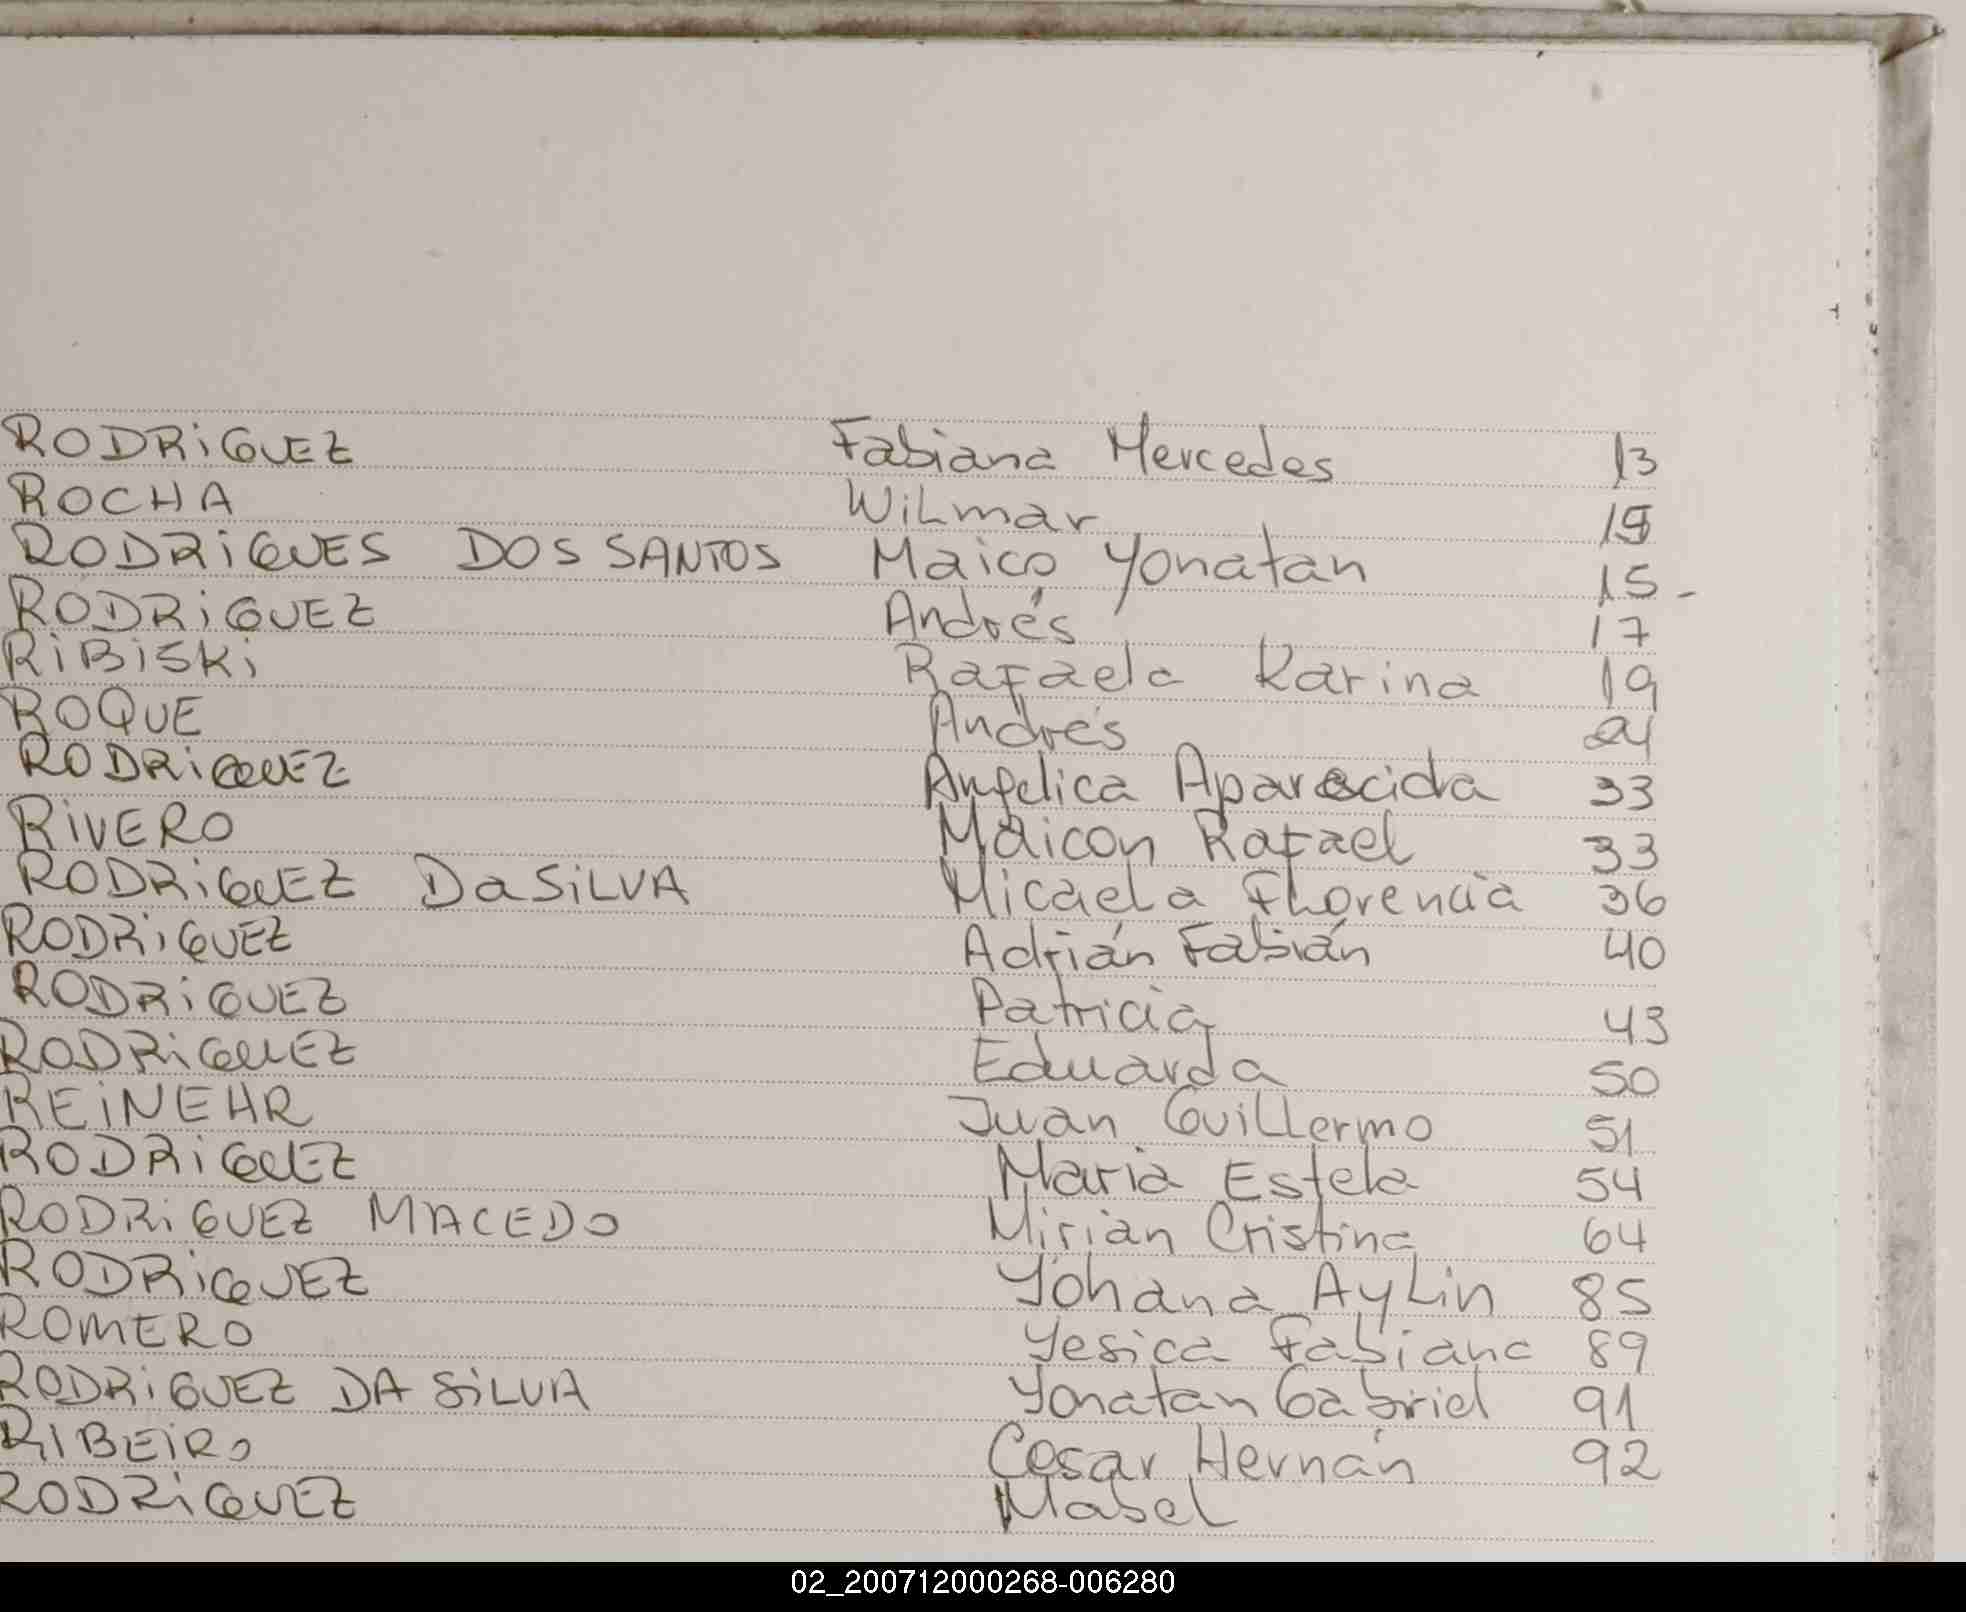 RODRiGUEZ Fabiana Mercedes 13
ROCHA WiLmar 15
RODRiGUES DOS SANTOS Maico Yonatan 15-
RODRiGUEZ Andrés 17
RiBiSKi Rafaela Karina 19
ROQUE Andrés
RODRiGUEZ Angelica Aparecida 33
RiVERO Maicon Rafael 33
RODRiGUEZ DaSiLVA Micaela FLorencia 36
RODRiGUEZ Adrián Fabián 40
RODRiGUEZ Patricia 43
RODRiGUEZ Eduarda 50
REiNEHR Juan GuiLLermo 51
RODRiGUEZ Maria Estela 54
RODRiGUEZ MACEDO Mirian Cristina 64
RODRiGUEZ Yohana AyLin 85
ROMERO Yesica Fabiana 89
RODRiGUEZ DA SiLVA Yonatan Gabriel 91
RIBEiRO Cesar Hernán 92
RODRiGUEZ MabeL
02_200712000268-006280